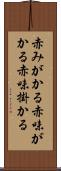 赤みがかる赤味が
かる赤味掛かる